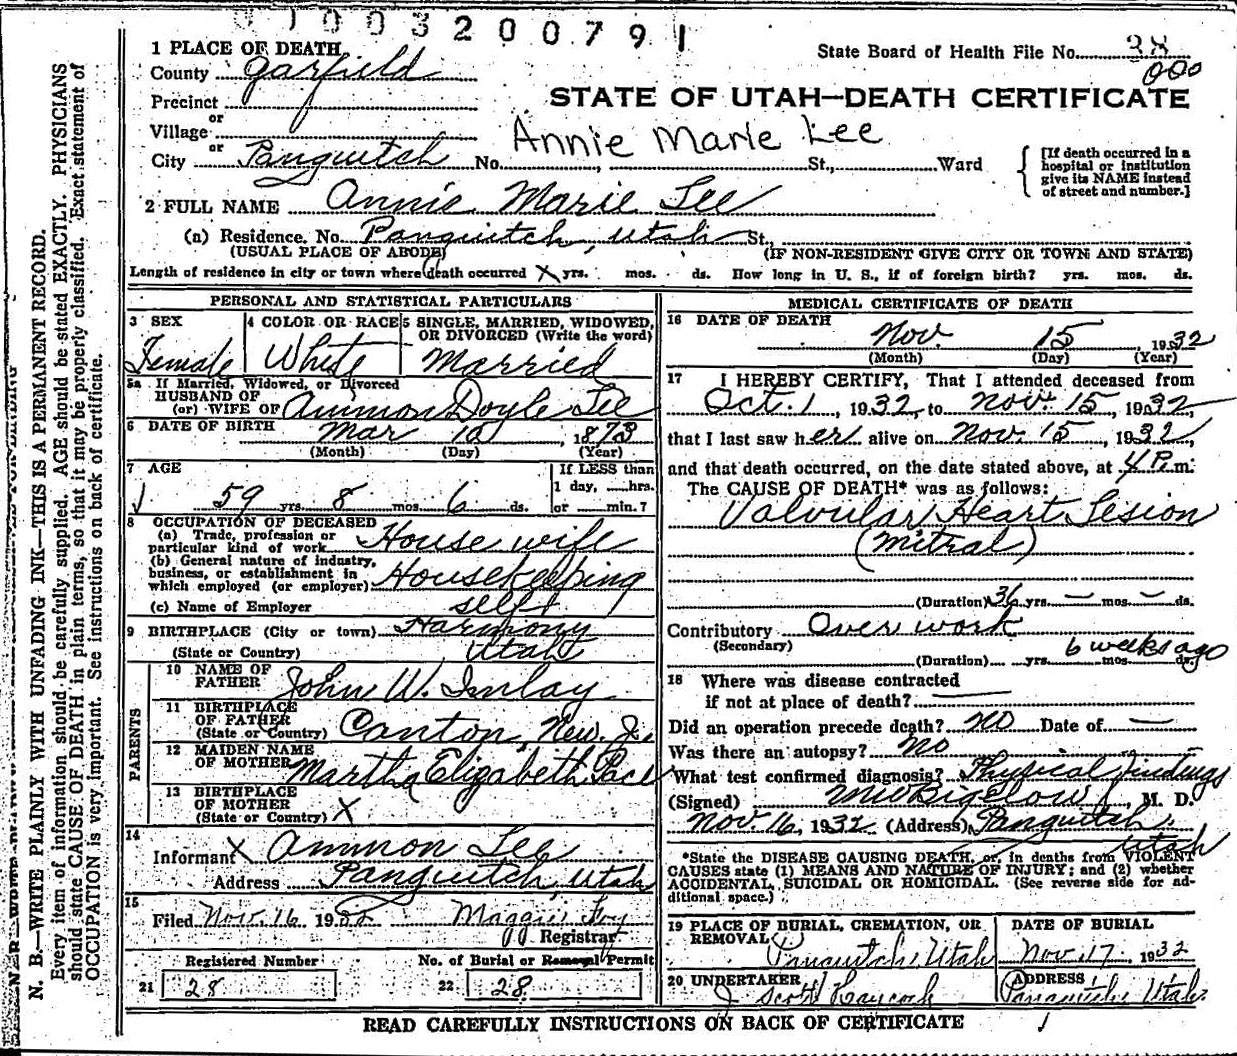 0100320079 1
1 PLACE OF DEATH
State Board of Health File No. 28
000
County Garfield
Precinct
or
Village
or
City Panguitch No. St., Ward
STATE OF UTAH—DEATH CERTIFICATE
Annie Marie Lee
[If death occurred in a
hospital or institution
give its NAME instead
of street and number.]
2 FULL NAME Annie Marie Lee
(a) Residence. No. Panguitch, Utah St.,
(USUAL PLACE OF ABODE) (IF NON-RESIDENT GIVE CITY OR TOWN AND STATE)
Length of residence in city or town where death occurred X yrs. mos. ds. How long in U. S., if of foreign birth? yrs. mos. ds.
PERSONAL AND STATISTICAL PARTICULARS
3 SEX
Female
4 COLOR OR RACE
White
5 SINGLE, MARRIED, WIDOWED,
OR DIVORCED (Write the word)
Married
5a If Married, Widowed, or Divorced
HUSBAND OF
(or) WIFE OF Ammon Doyle Lee
6 DATE OF BIRTH Mar 10 1873
(Month) (Day) (Year)
7 AGE
59 yrs. 8 mos. 6 ds.
If LESS than
1 day, hrs.
or min.?
8 OCCUPATION OF DECEASED
(a) Trade, profession or
particular kind of work House wife
(b) General nature of industry,
business, or establishment in
which employed (or employer) Housekeeping
(c) Name of Employer self
9 BIRTHPLACE (City or town) Harmony
(State or Country) Utah
PARENTS
10 NAME OF
FATHER John W. Imlay
11 BIRTHPLACE
OF FATHER
(State or Country) Canton, New. J.
12 MAIDEN NAME
OF MOTHER Martha Elizabeth Pace
13 BIRTHPLACE
OF MOTHER
(State or Country) X
14
Informant X Ammon Lee
Address Panguitch, Utah
15
Filed Nov. 16 1932 Maggie Foy
Registrar
Registered Number
21 28
No. of Burial or Removal Permit
22 28
MEDICAL CERTIFICATE OF DEATH
16 DATE OF DEATH
Nov. 15 1932
(Month) (Day) (Year)
17 I HEREBY CERTIFY, That I attended deceased from
Oct. 1, 1932, to Nov. 15, 1932,
that I last saw her alive on Nov. 15, 1932,
and that death occurred, on the date stated above, at 4 P. m.
The CAUSE OF DEATH* was as follows:
Valvular Heart Lesion
(Mitral)
(Duration) 36 yrs. — mos. — ds.
Contributory Over work
(Secondary)
6 weeks ago
(Duration) yrs. mos. ds.
18 Where was disease contracted
if not at place of death? —
Did an operation precede death? no Date of —
Was there an autopsy? No
What test confirmed diagnosis? Physical findings
(Signed) MW Bigelow, M. D.
Nov. 16, 1932 (Address) Panguitch
Utah
*State the DISEASE CAUSING DEATH, or, in deaths from VIOLENT
CAUSES state (1) MEANS AND NATURE OF INJURY; and (2) whether
ACCIDENTAL, SUICIDAL OR HOMICIDAL. (See reverse side for ad-
ditional space.)
19 PLACE OF BURIAL, CREMATION, OR
REMOVAL
Panguitch, Utah
DATE OF BURIAL
Nov. 17, 1932
20 UNDERTAKER
J Scott Haycock
ADDRESS
Panguitch, Utah
READ CAREFULLY INSTRUCTIONS ON BACK OF CERTIFICATE
N. B.—WRITE PLAINLY WITH UNFADING INK—THIS IS A PERMANENT RECORD.
Every item of information should be carefully supplied. AGE should be stated EXACTLY. PHYSICIANS
should state CAUSE OF DEATH in plain terms, so that it may be properly classified. Exact statement of
OCCUPATION is very important. See instructions on back of certificate.